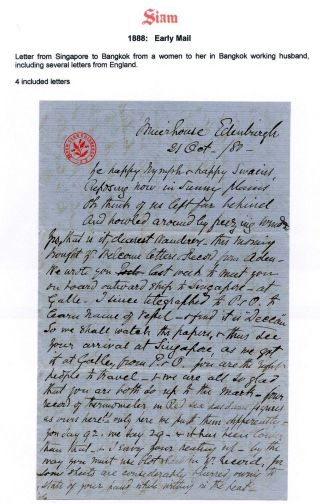 Siam
1888: Early Mail
Letter from Singapore to Bangkok from a women to her in Bangkok working husband,
including several letters from England.
4 included letters
Muirhouse Edinburgh
21 Oct - /87 -
ye happy Nymph & happy Swains
Reposing now in Sunny plains
Oh think of us left far behind
And howled around by freezing winds
Yes, that is it, dearest - this morning
brought yr welcome letters, Record from Aden -
We wrote you last week to meet you
on board outward ship to Singapore - at
Galle. I since telegraphed to P & O. to
learn name of vessel - & find it is "Deccan"
So we shall watch the papers, & thus see
your arrival at Singapore, as we got
it at Galle, from P & O. you are the right
people to travel - & we are all so glad
that you are both so up to the mark - your
record of thermometer in Red Sea
as ours here! only here we put them differently -
you say 92, we say 29 - & it has been lower
than that - I envy your heating up - by the
way you must use blot sheet in yr Record, for
some sheets are considerably blurred owing
state of your hand while writing in the heat